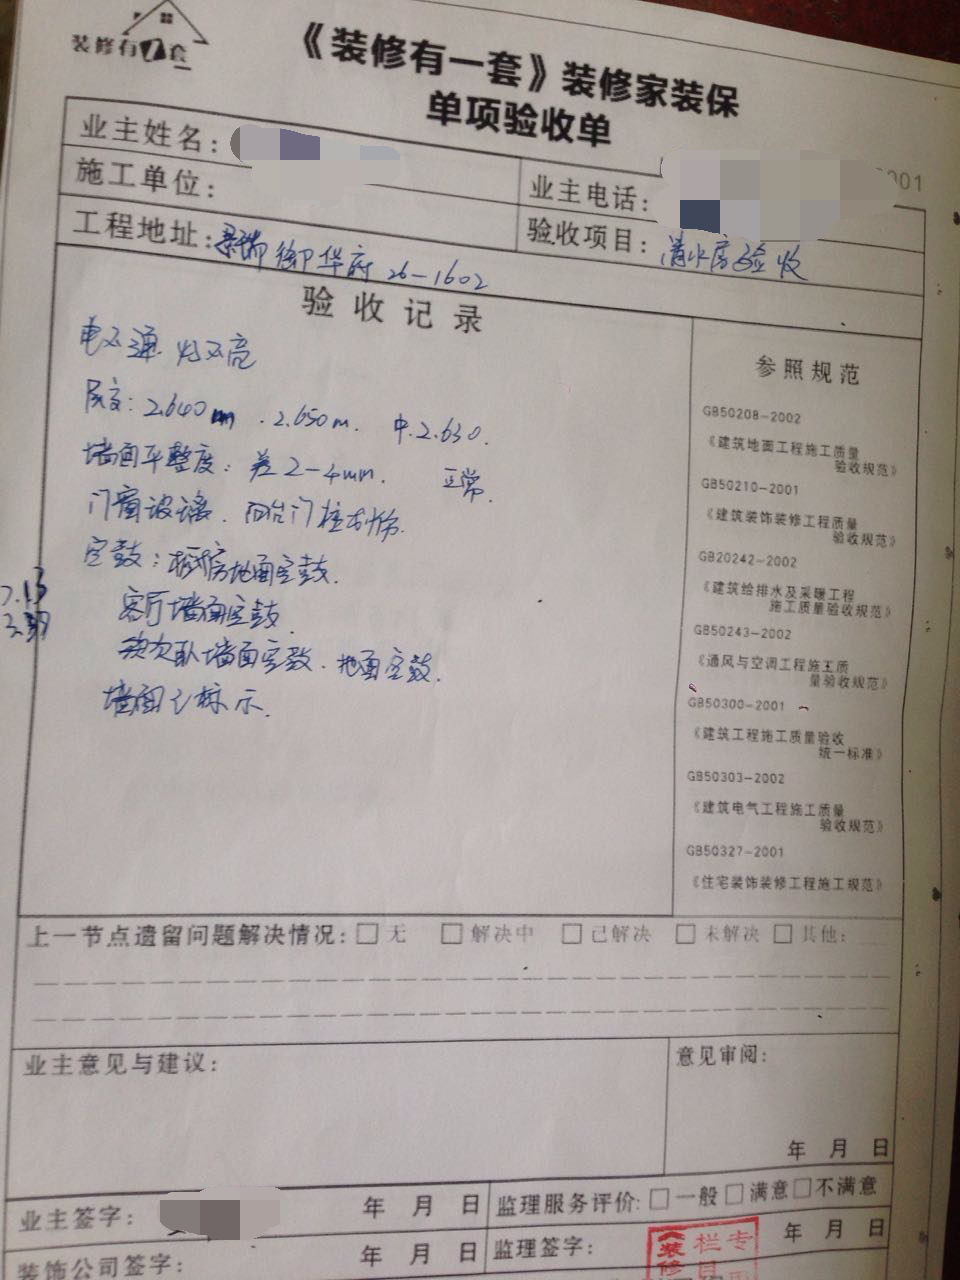 装修有一套
《装修有一套》装修家装保
单项验收单
业主姓名：
001
施工单位：
业主电话：
工程地址：景瑞御华府 26-1602
验收项目：清水房验收
验收记录
电不通 灯不亮
层高：2.640m . 2.650m. 中.2.630.
墙面平整度：差2-4mm. 正常.
门窗玻璃. 阳台门
空鼓：厨房地面空鼓.
客厅墙面空鼓.
次卧墙面空鼓. 地面空鼓.
墙面已标示.
7.13
参照规范
GB50208-2002
《建筑地面工程施工质量
验收规范》
GB50210-2001
《建筑装饰装修工程质量
验收规范》
GB20242-2002
《建筑给排水及采暖工程
施工质量验收规范》
GB50243-2002
《通风与空调工程施工质
量验收规范》
GB50300-2001
《建筑工程施工质量验收
统一标准》
GB50303-2002
《建筑电气工程施工质量
验收规范》
GB50327-2001
《住宅装饰装修工程施工规范》
上一节点遗留问题解决情况：□无 □解决中 □已解决 □未解决 □其他：
业主意见与建议：
意见审阅：
年 月 日
业主签字： 年 月 日
监理服务评价：□一般□满意□不满意
装饰公司签字： 年 月 日
监理签字： 年 月 日
《装修
栏目
专